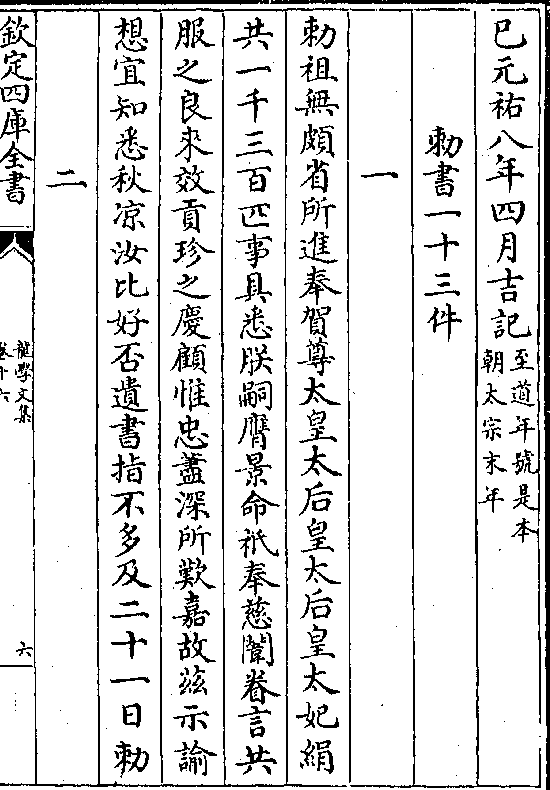 巳元祐八年四月吉記至道年號是本
朝太宗末年
勅書一十三件
一
勅祖無頗省所進奉賀尊太皇太后皇太后皇太妃絹
共一千三百匹事具悉朕嗣膺景命祇奉慈闈眷言共
服之良來效貢珍之慶顧惟忠藎深所歎嘉故茲示諭
想宜知悉秋凉汝比好否遺書指不多及二十一日勅
二
欽定四庫全書
龍學文集
卷十六
六